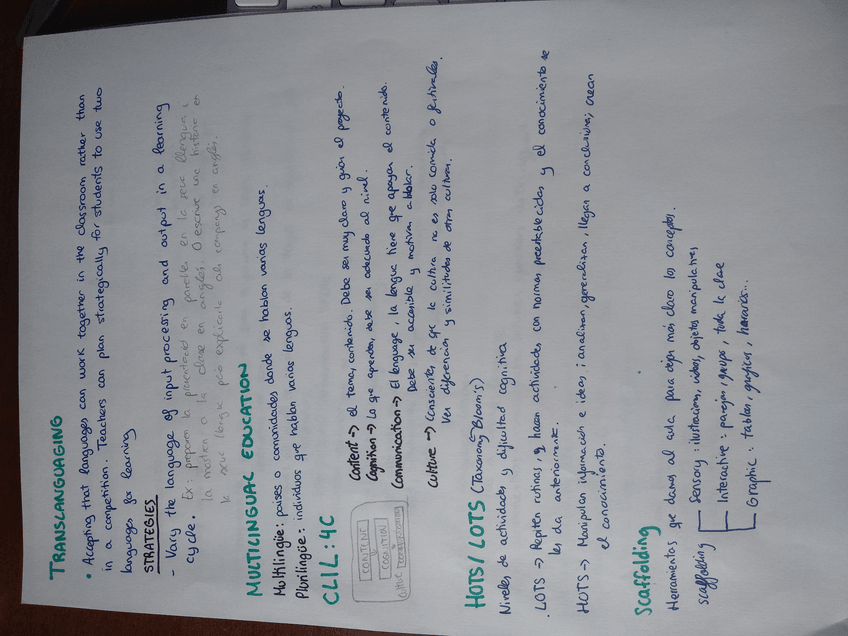 TRANSLANGUAGING
• Accepting that languages can work together in the classroom rather than
in a competition. Teachers can plan strategically for students to use two
languages for learning
STRATEGIES
- Vary the language of input processing and output in a learning
cycle. Ex: preparen la presentació en parelles en la seue llengua i
la mostren a la clase en anglés. O escriure una història en
la seue llengua pero explicarla als companys en anglés.
MULTILINGUAL EDUCATION
Multilingüe: países o comunidades donde se hablan varias lenguas.
Plurilingüe: individuos que hablan varias lenguas.
CLIL: 4C
CONTENT
COGNITION
CULTURE
Content → el tema, contenido. Debe ser muy claro y guía el proyecto.
Cognition → Lo que aprenden, debe ser adecuado al nivel.
Communication → El lenguage, la lengua tiene que apoyar el contenido.
Debe ser accesible y motivar a hablar.
Culture → Consciente, de que la cultura no es solo comida o festivales.
Ver diferencias y similitudes de otras culturas.
HOTS/LOTS (Taxonomy Bloom's)
Niveles de actividades y dificultad cognitiva
. LOTS → Repiten rutinas, y hacen actividades con normas preestablecidas y el conocimiento se
les da anteriormente.
HOTS → Manipulan información e ideas; analizan, generalizan, llegan a conclusiones; crean
el conocimiento.
Scaffolding
Herramientas que damos al aula para dejar más claro los conceptos.
scaffolding
Sensory: ilustraciones, videos, objetos manipulatives
Interactive: parejas, grupo, tota la clase
Graphic: tablas, graficos, horarios...